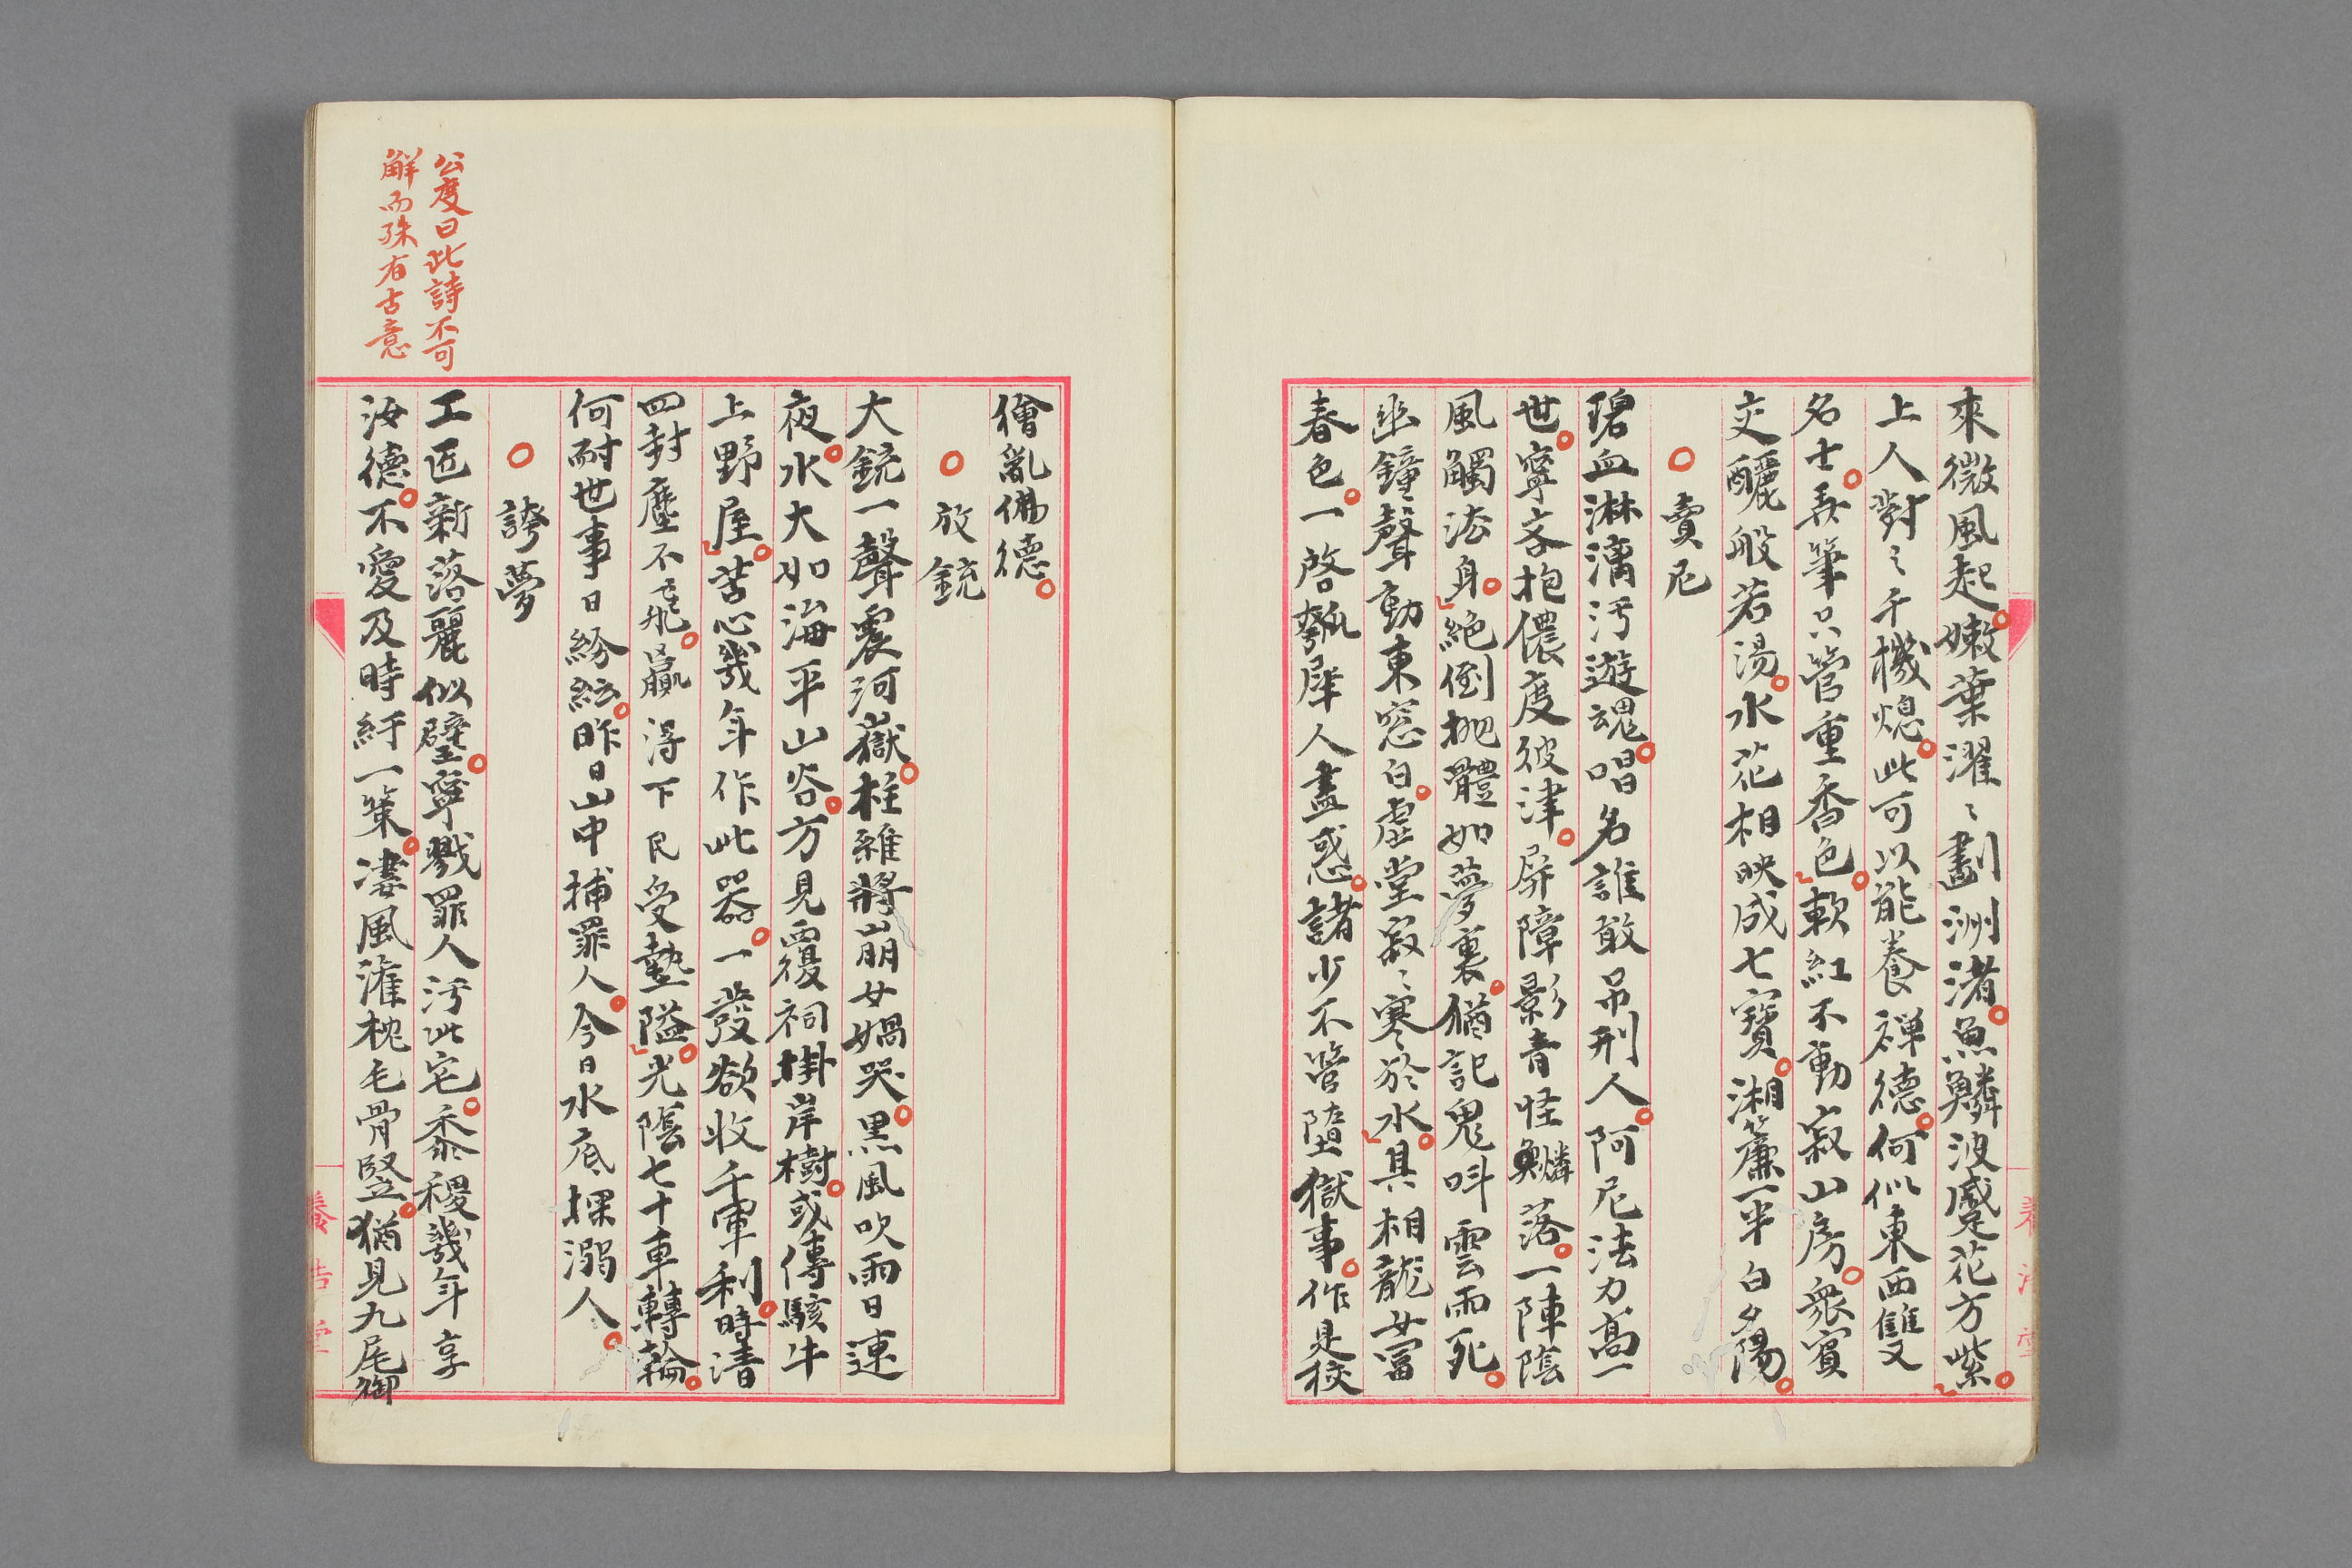 來微風起嫩葉濯〻劃洲渚魚鱗波蹙花方紫
上人對〻千機熄此可以能養禪德何似東西雙
名士弄筆只管重香色軟紅不動寂山房衆賓
交釃般若湯水花相映成七寶湘簾一半白夕陽
賣尼
碧血淋漓汚遊魂唱名誰敢吊刑人阿尼法力高一
世寧吝抱儂度彼津屏障影青怪鱗落一陣陰
風觸法身絕倒抛體如夢裏猶記鬼叫雲雨死
幽鐘聲動東窓白虛堂寂〻寒於水具相龍女當
春色一啓瓠犀人盡惑諸少不管墮獄事作是狡
獪亂佛德
放銃
大銃一聲震河嶽柱維將崩女媧哭黑風吹雨日連
夜水大如海平山谷方見覆祠掛岸樹或傳駭牛
上野屋苦心幾年作此器一發欲收千軍利時清
四封塵不飛贏得下民受墊隘光陰七十車轉輪
何耐世事日紛紜昨日山中捕罪人今日水底探溺人
誇夢
工匠新落麗似璧寧戮罪人汚此宅黍稷幾年享
汝德不愛及時紆一策淒風滙枕毛骨豎猶見九尾御
公度曰此詩不可
解而殊有古意
養浩堂